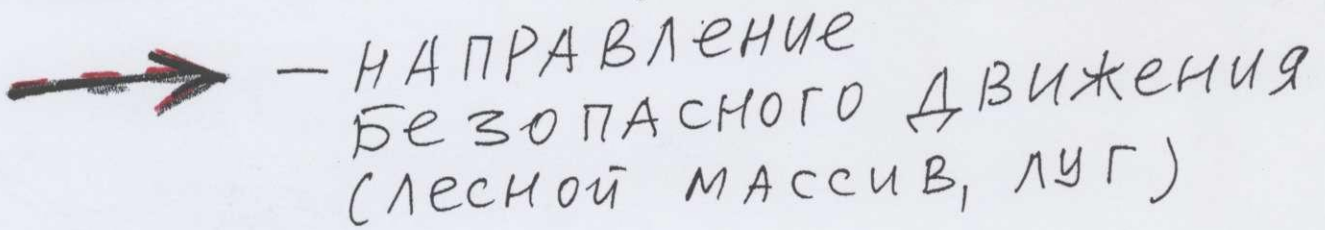 — НАПРАВЛЕНИЕ
БЕЗОПАСНОГО ДВИЖЕНИЯ
(ЛЕСНОЙ МАССИВ, ЛУГ)